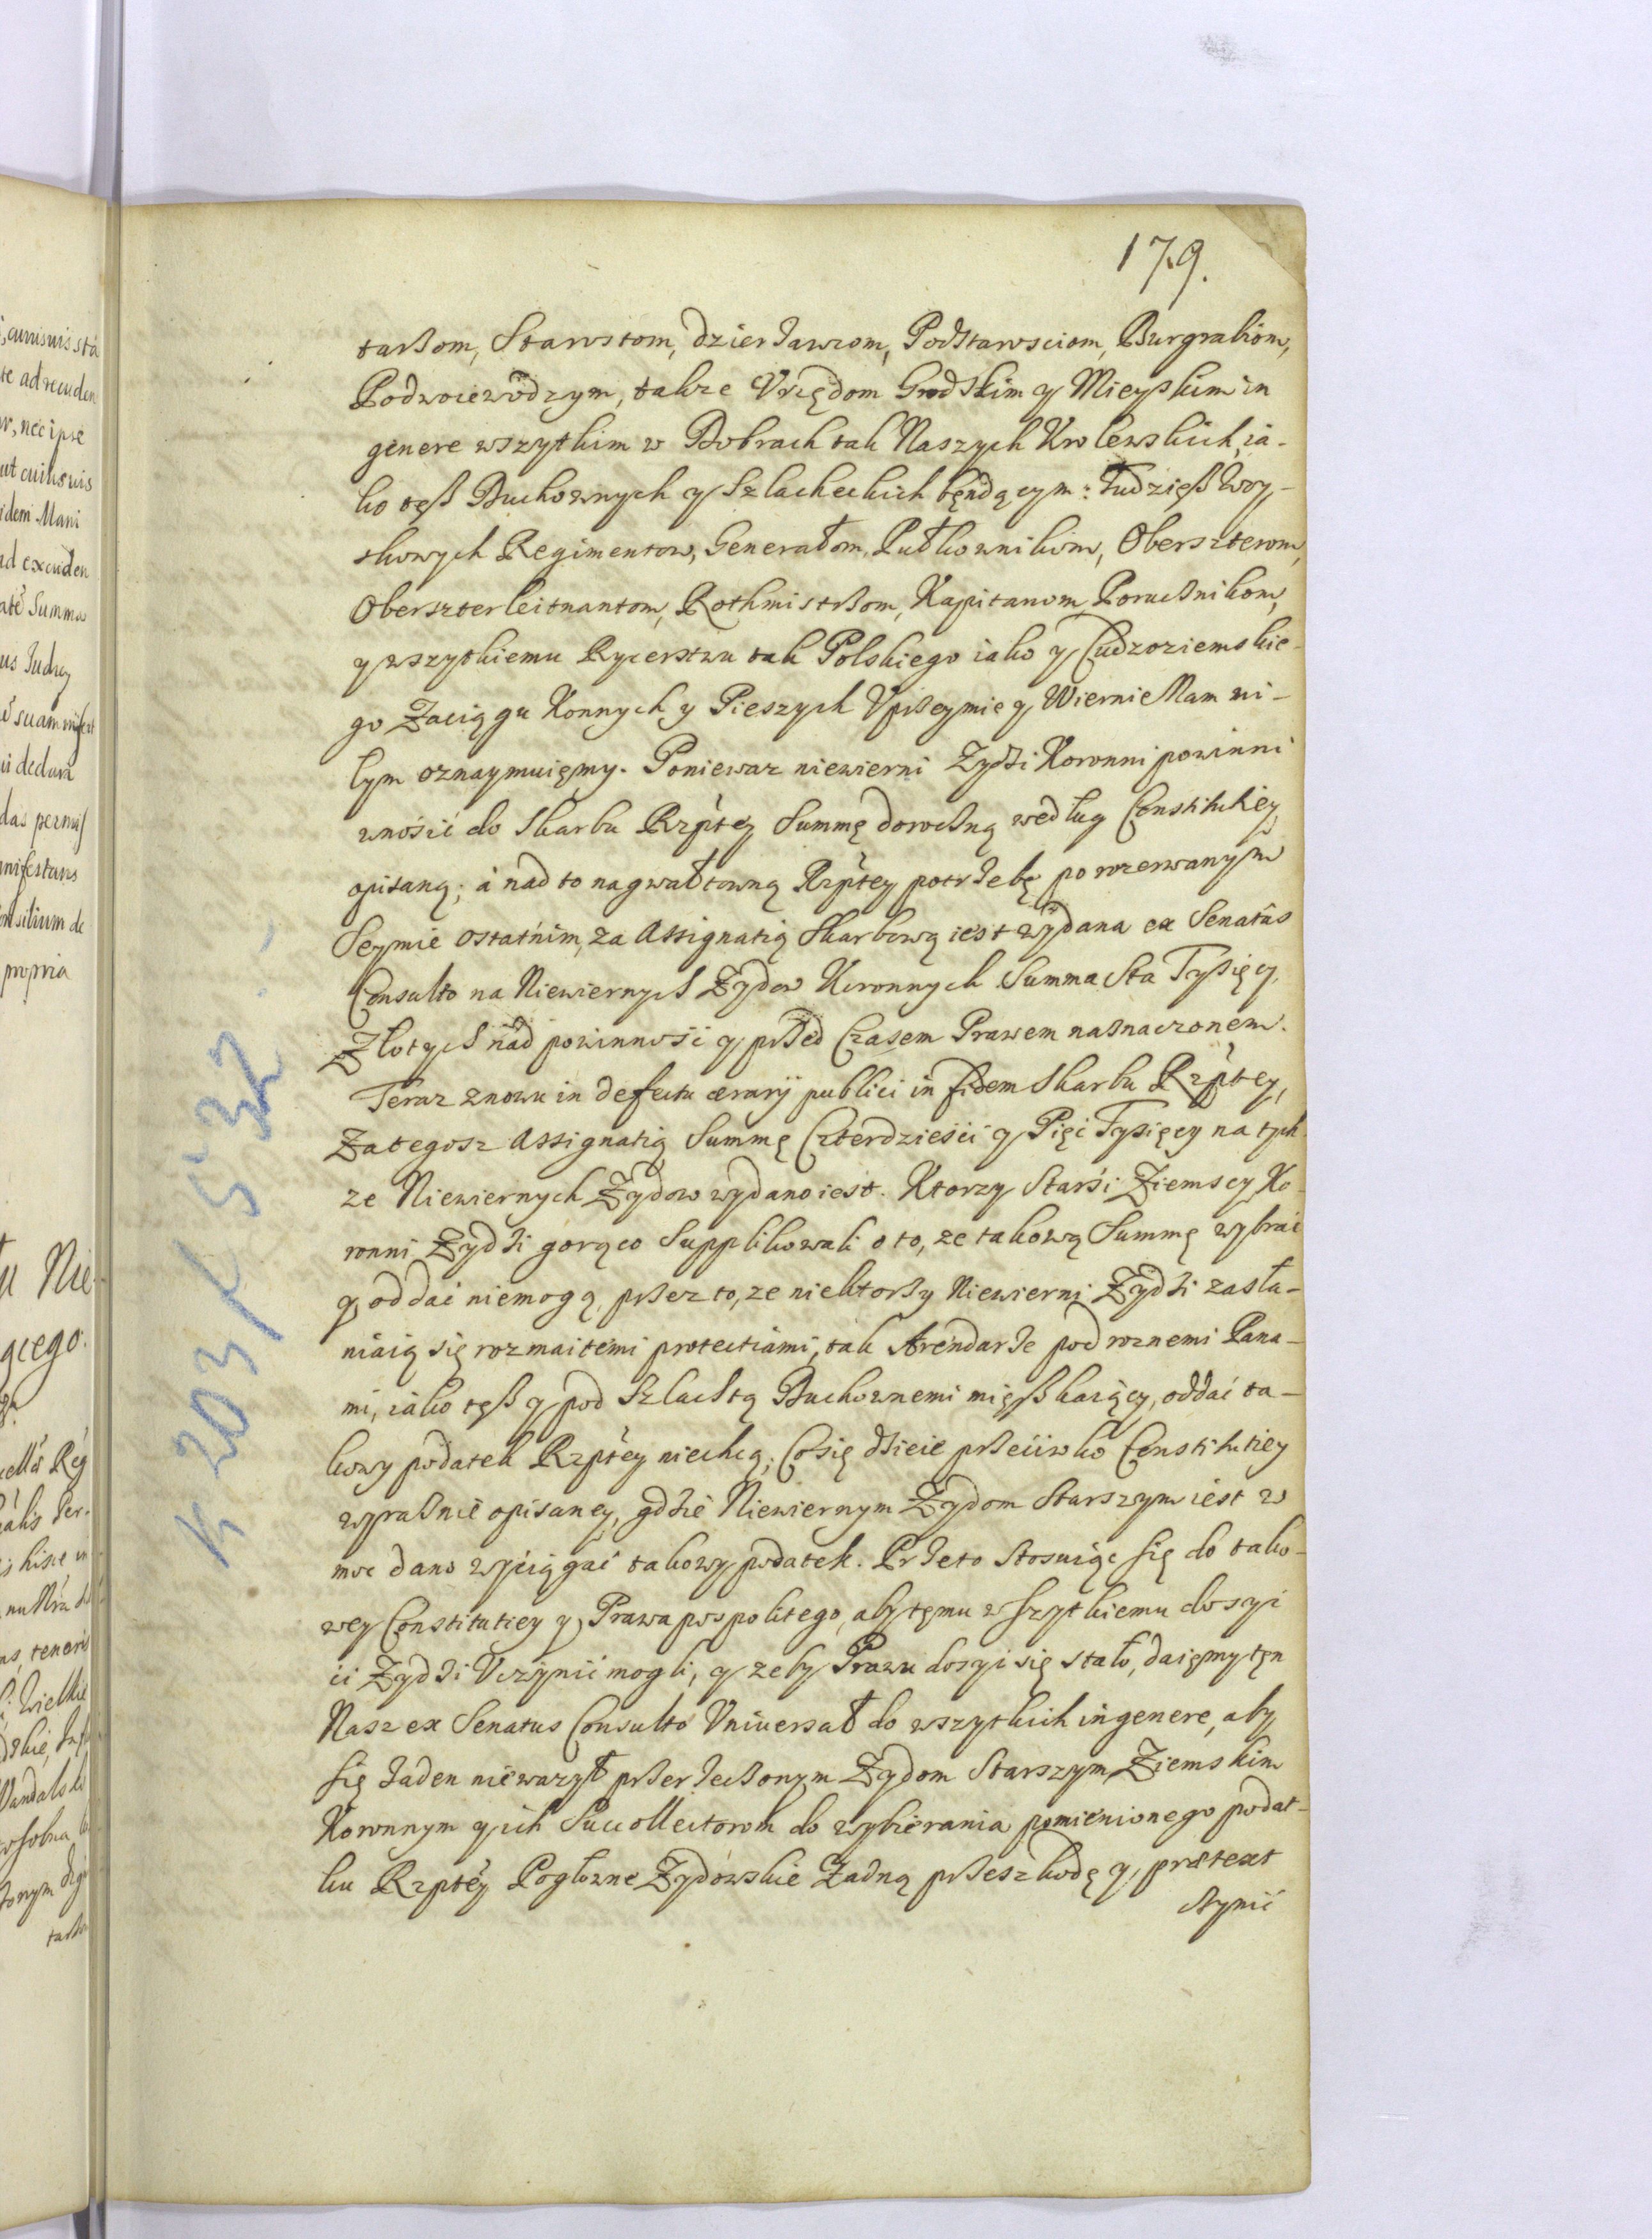 179.
tarßom, Starostom, dzierżawcom, Podstarosciom, Burgrabiom,
Podwoiewodzym, takze Vrzędom Grodskim y Mieyskim in
genere wszytkim w Dobrach tak Naszych Krolewskich, ia-
ko teß Duchownych y Szlacheckich będącym: Tudzieß Woy-
skowych Regimentow, Generałom, Pułkownikom, Oberszterom,
Oberszterleitnantom, Rothmistrßom, Kapitanom, Porucßnikom,
y wszytkiemu Rycerstwu tak Polskiego iako y Cudzoziemskie-
go Zaciągu Konnych y Pieszych Vprßeymie y Wiernie Nam mi-
lym oznaymuięmy. Poniewaz niewierni Zydżi Koronni powinni
wnośić do Skarbu Rzptey Summę dorocßną według Constitutiey
opisaną; á nad to na gwałtowną Rzptey potrżebę po rozerwanym
Seymie ostatnim, za Assignatią Skarbową iest wydana ex Senatûs
Consulto na Niewiernych Zydow Koronnych Summa Sta Tysięcy
Złotych nad powinność y prßed Czasem Prawem naßnaczonem.
Teraz znowu in defectu ærarij publici in fidem Skarbu Rzptey,
Za tegosz Assignatią Summę Czterdzieści y Pięć Tysięcy na tych-
ze Niewiernych Zydow wydano iest. Ktorzy Starśi Ziemscy Ko-
ronni Zydżi gorąco Supplikowali o to, ze takową Summę wybrać
y oddać niemogą, prßez to, ze niektorßy Niewierni Zydżi zasła-
niaią się rozmaitemi protectiami, tak Arendarże pod roznemi Pana-
mi, iako teß y pod Szlachtą Duchownemi mięßkaiący, oddać ta-
kowy podatek Rzptey niechcą; Co się dżieie prßeciwko Constitutiey
wyraßnie opisaney, gdżie Niewiernym Zydom Starszym iest w
moc dano wyciągać takowy podatek. Prżeto Stosuiąc się do tako-
wey Constitutiey y Prawa pospolitego, aby temu wszytkiemu dosyć
ci Zydżi Vczynić mogli, y zeby Prawu dosyć się stało, daięmy ten
Nasz ex Senatus Consulto Vniuersał do wszytkich in genere, aby
się żaden niewazył prßerżecßonym Zydom Starszym Ziemskim
Koronnym y ich Succollectorom do wybierania pomienionego podat-
ku Rzptey Pogłowne Zydowskie Zadną prßeszkodę y prætext
cßynić
K 203 f 532